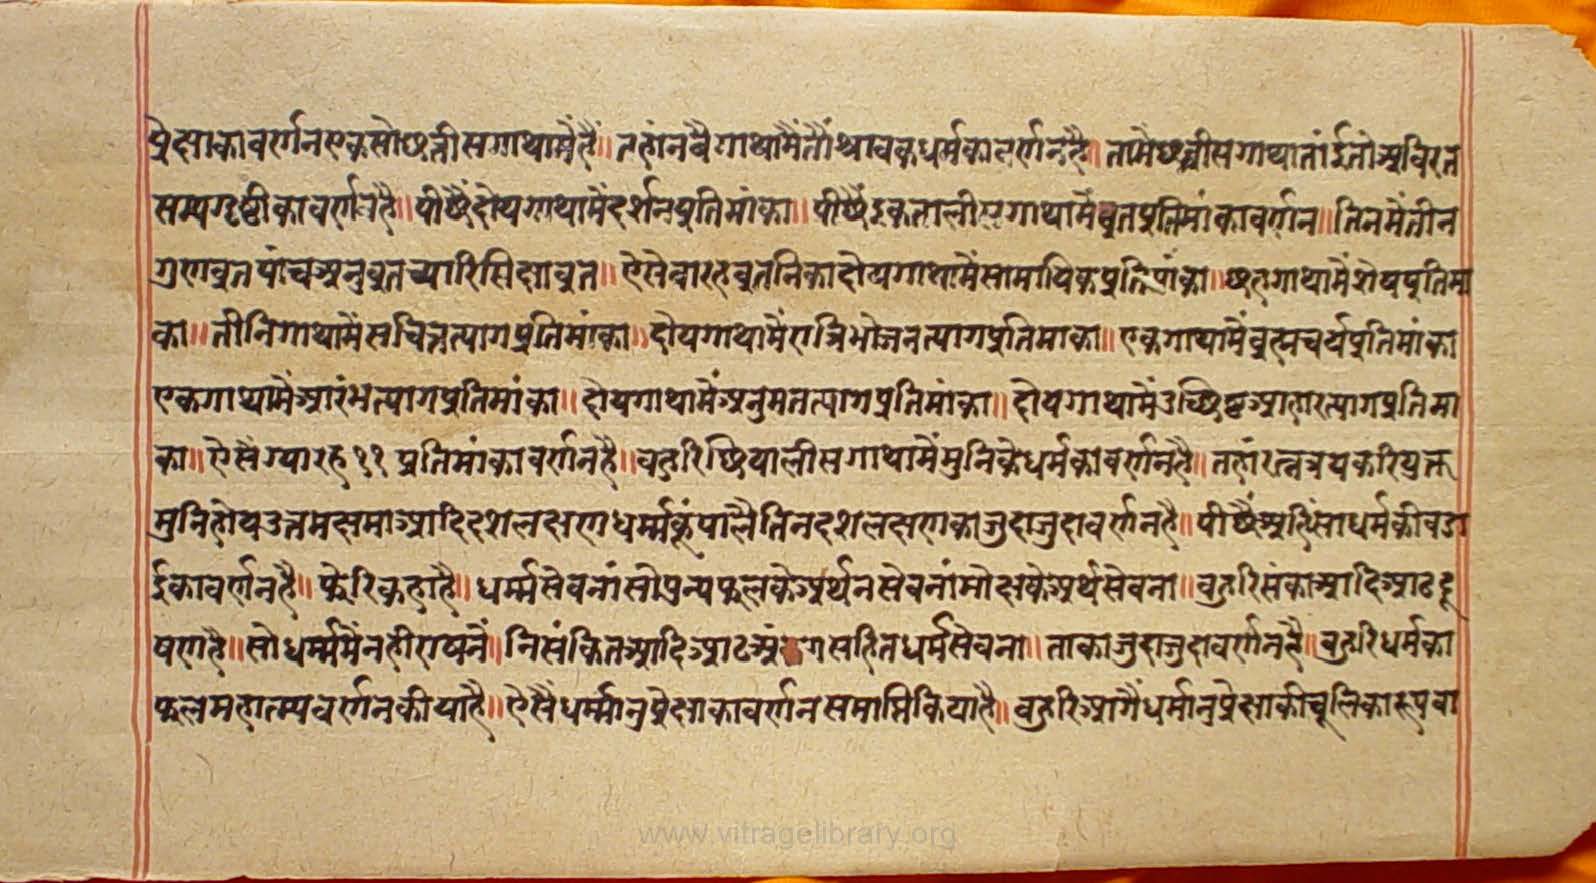 प्रेक्षाकावर्णनएकसोछत्तीसगाथामैंहैं॥तहांनवैगाथामैंतौश्रावकधर्मकावर्णनहै॥तामैछत्तीसगाथातांईतोअविरत
सम्यगदृष्टीकावर्णनहै॥पीछैंदोयगाथामैंदर्शनप्रतिमांका॥पीछैंइकतालीसगाथामैंव्रतप्रतिमांकावर्णन॥तिनमैंतीन
गुणव्रतपांचअनुव्रतच्यारिसिक्षाव्रत॥ऐसेबारहव्रतनिकादोयगाथामैंसामायिकप्रतिमांका॥छहगाथामैंशेषप्रतिमा
का॥तीनिगाथामैंसचित्तत्यागप्रतिमांका॥दोयगाथामैंरात्रिभोजनत्यागप्रतिमाका॥एकगाथामैंब्रह्मचर्यप्रतिमांका
एकगाथामैंआरंभत्यागप्रतिमांका॥दोयगाथामैंअनुमतत्यागप्रतिमांका॥दोयगाथामैंउच्छिष्टआहारत्यागप्रतिमा
का॥ऐसैंग्यारह११प्रतिमांकावर्णनहै॥बहुरिछियालीसगाथामैंमुनिकेधर्मकावर्णनहै॥तहांरत्नत्रयकरियुक्त
मुनिहोयउत्तमक्षमाआदिदशलक्षणधर्म्मकूंपालैतिनदशलक्षणकाजुदाजुदावर्णनहै॥पीछैंअहिंसाधर्मकीबडा
ईकावर्णनहै॥फेरिकहाहै॥धर्म्मसेवनांसोपुन्यफलकेअर्थनसेवनांमोक्षकेअर्थसेवना॥बहुरिसंकाआदिआठदू
षणहै॥सोधर्म्ममैंनहीराषनैं॥निसंकितआदिआठअंगसहितधर्मसेवना॥ताकाजुदाजुदावर्णनहै॥बहुरिधर्मका
फलमहातम्यवर्णनकीयाहै॥ऐसैंधर्म्मानुप्रेक्षाकावर्णनसमाप्तिकियाहै॥बहुरिआगैंधर्मानुप्रेक्षाकीचूलिकारूपबा
www.vitragelibrary.org